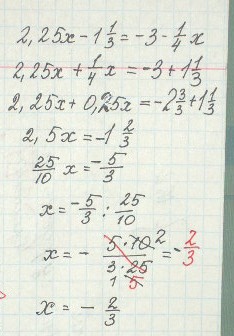 2,25x - 1 1/3 = -3 - 1/4 x
2,25x + 1/4 x = -3 + 1 1/3
2,25x + 0,25x = -2 3/3 + 1 1/3
2,5x = -1 2/3
25/10 x = -5/3
x = -5/3 : 25/10
x = - 5·10 2 / 3·25 1 5 = - 2/3
x = - 2/3